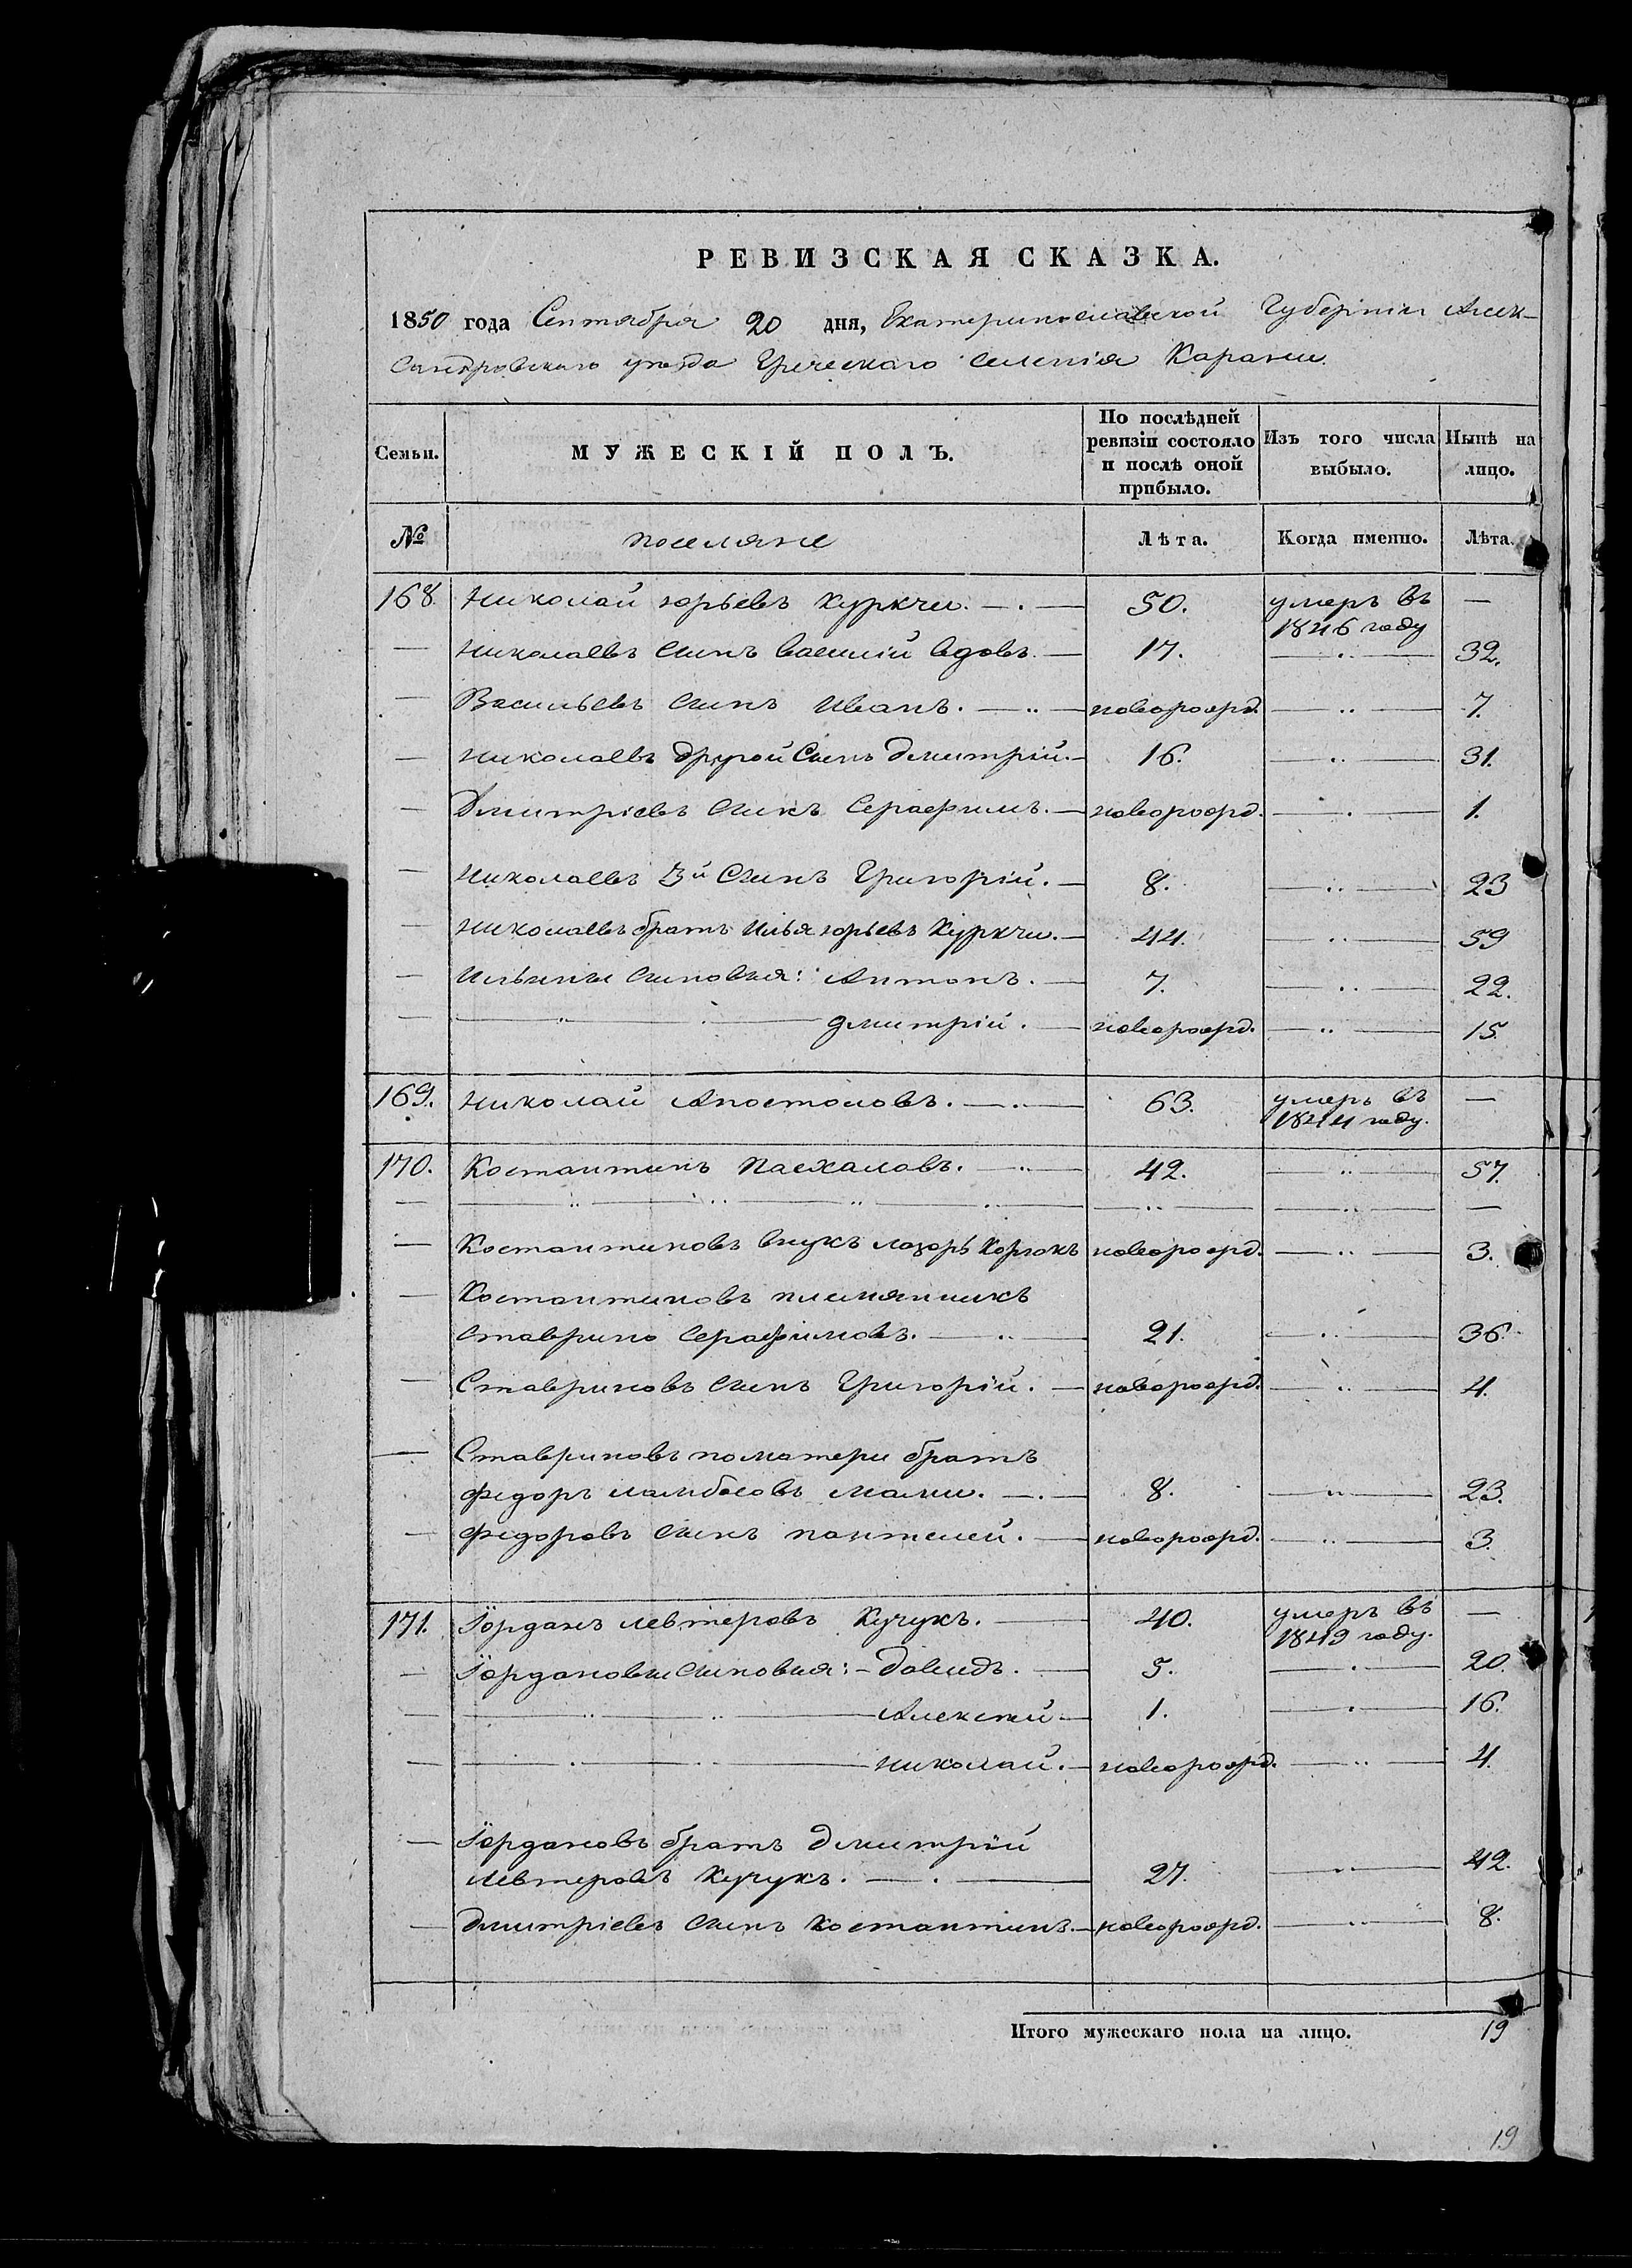 РЕВИЗСКАЯ СКАЗКА.
1850 года Сентября 20 дня, Екатеринославской Губерніи Алек-
сандровскаго уезда Греческаго селенія Карани.
Семьи.
МУЖЕСКІЙ ПОЛЪ.
По послѣдней ревизіи состояло и послѣ оной прибыло.
Изъ того числа выбыло.
Нынѣ на лицо.
№ поселяне Лѣта. Когда именно. Лѣта.
168. Николай юрьевъ Куркчи. — . — 50. умеръ въ 1846 году —
— Николаевъ сынъ василій вдовъ. — 17. — . — 32.
— Васильевъ сынъ Иванъ. — .. — новорожд. — .. — 7.
— Николаевъ другой Сынъ Дмитрій. — 16. — .. — 31.
— Дмитріевъ сынъ Серафимъ. — новорожд. — . — 1.
— Николаевъ 3й Сынъ Григорій. — 8. — .. — 23
— Николаевъ братъ Илья юрьевъ Куркчи. — 44. — .. — 59
— Ильины сыновья: Антонъ. — 7. — .. — 22.
— — .. — . — дмитрій. — новорожд. — .. — 15.
169. Николай Апостоловъ. — .. — 63. умеръ въ 1844 году. —
170. Костантинъ Пасхаловъ. — .. — 42. — .. — 57.
— — .. — .. — .. — .. — — .. — — .. — —
— Костантиновъ внукъ лазорь Корлокъ новорожд. — .. — 3.
— Костантиновъ племянникъ
ставрино Серафимовъ. — .. — 21. — .. — 36.
— Ставриновъ сынъ Григорій. — новорожд. — .. — 4.
— Ставриновъ поматери братъ
Федоръ ламбовъ мали. — . — 8. — .. — 23.
— Федоровъ сынъ пантелей. — новорожд. — .. — 3.
171. Іорданъ левтеровъ Кучукъ. — 40. умеръ въ 1849 году. —
— Іордановы сыновья: — Давидъ. — 5. — . — 20.
— — .. — .. — Алексей — 1. — . — 16.
— — . — . — николай. — новорожд. — .. — 4.
— Іордановъ братъ Дмитрій
левтеровъ Кучукъ. — . — 27. — .. — 42.
— Дмитріевъ сынъ костантинъ. — новорожд. — .. — 8.
Итого мужескаго пола на лицо. 19
19